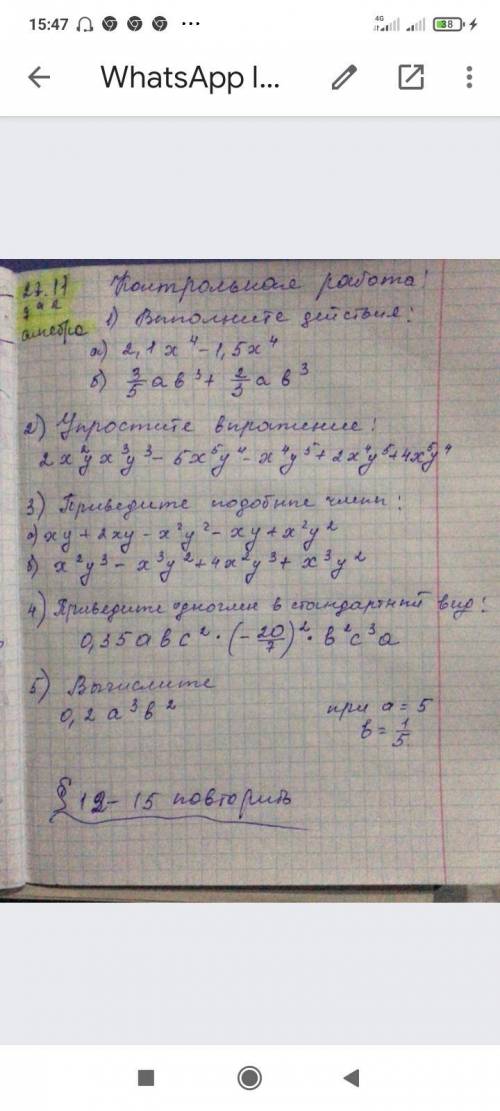 15:47 ... 4G 38
WhatsApp I...
27.11 Контрольная работа!
7 "а"
алгебра 1) Выполните действия:
а) 2,1x⁴ - 1,5x⁴
б) 3/5 aв³ + 2/5 aв³
2) Упростите выражение!
2x²yx³y³ - 5x⁵y⁴ - x⁴y⁵ + 2x⁴y⁵ + 4x⁵y⁴
3) Приведите подобные члены:
а) xy + 2xy - x²y² - xy + x²y²
в) x²y³ - x³y² + 4x²y³ + x³y²
4) Приведите одночлен в стандартный вид:
0,35aвc² · (-20/7)² · в²c³a
5) Вычислите
0,2a³в² при a = 5
в = 1/5
§ 12 - 15 повторить